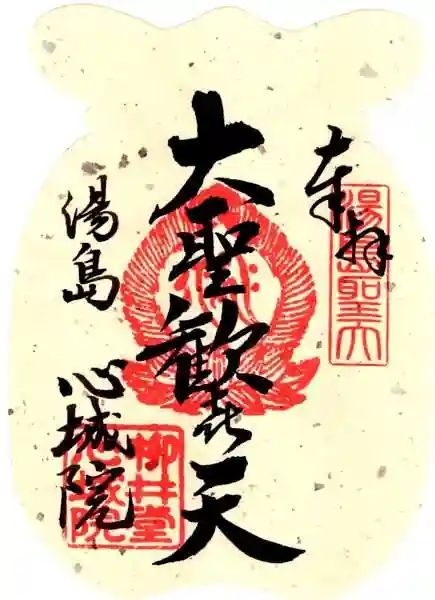 奉拝
湯島聖天
大聖歓㐂天
湯島 心城院
柳井堂
心城院